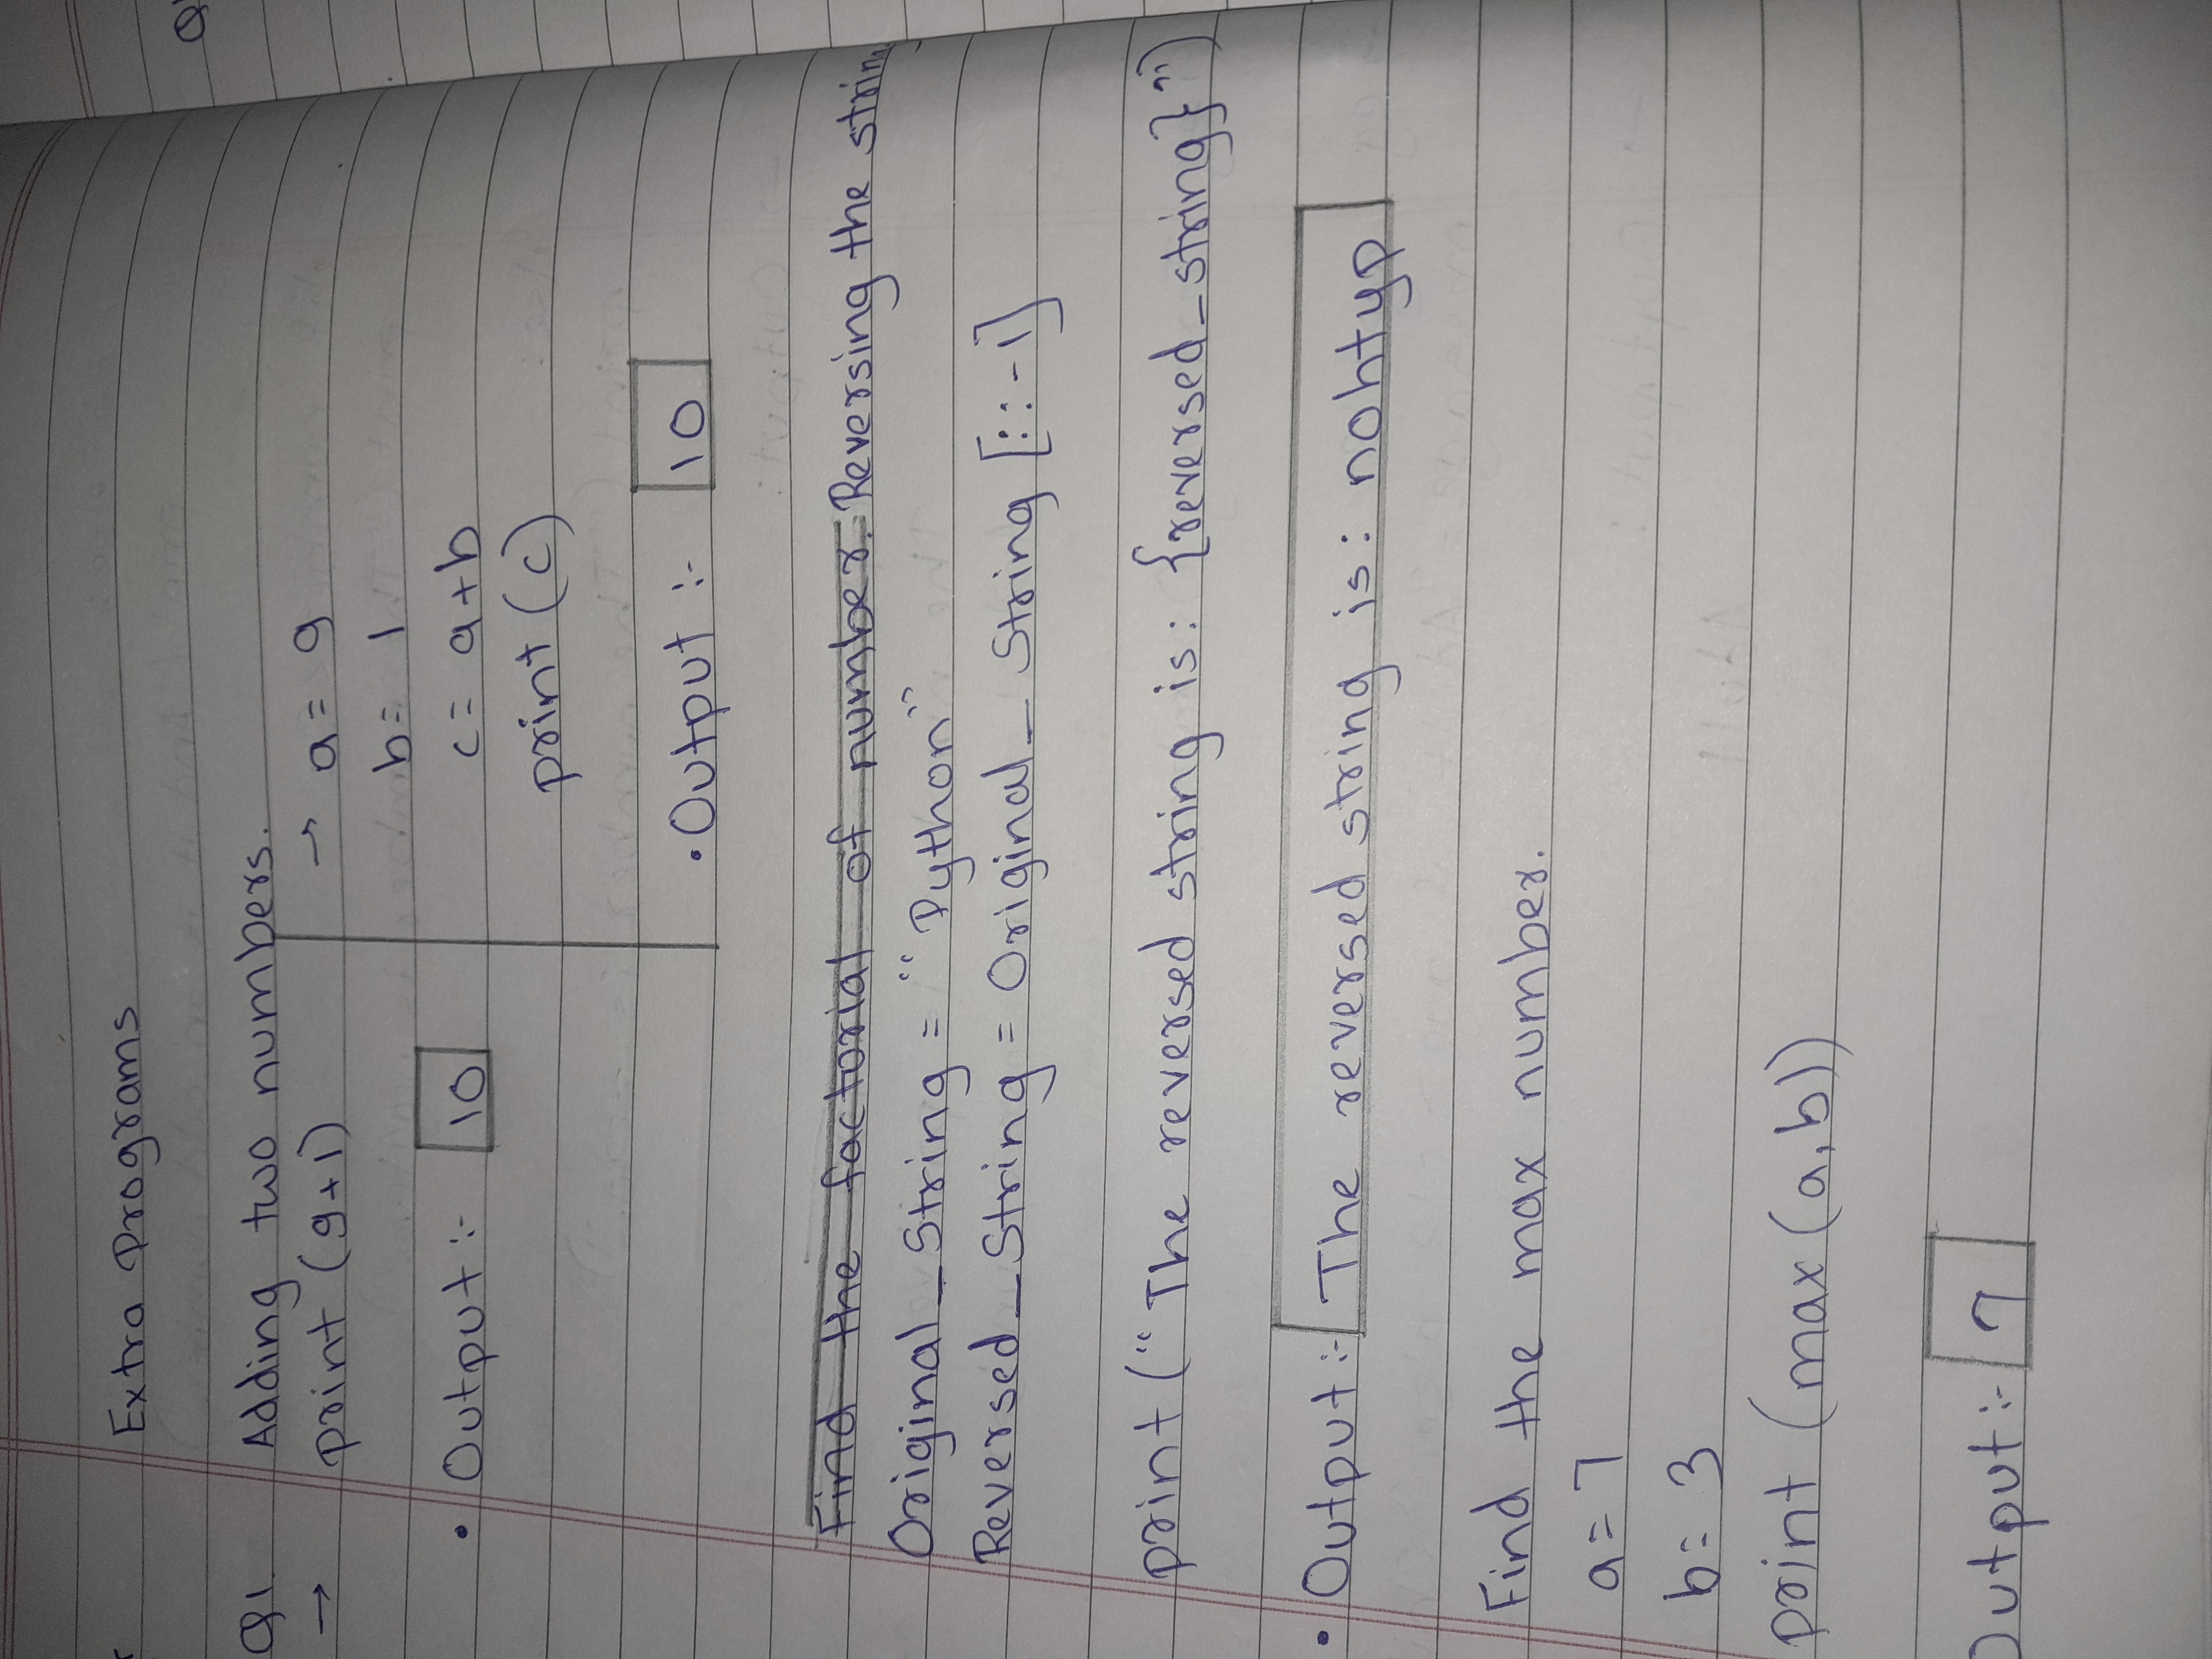 Extra programs
Q1. Adding two numbers.
→ print (9+1)
• Output :- 10
→ a = 9
b = 1
c = a+b
print (c)
• Output :- 10
Find the factorial of number. Reversing the string
Original_String = "Python"
Reversed_String = Original_String [::-1]
print ("The reversed string is: {reversed_string}")
• Output :- The reversed string is: nohtyp
Find the max number.
a = 7
b = 3
print (max (a,b))
Output :- 7